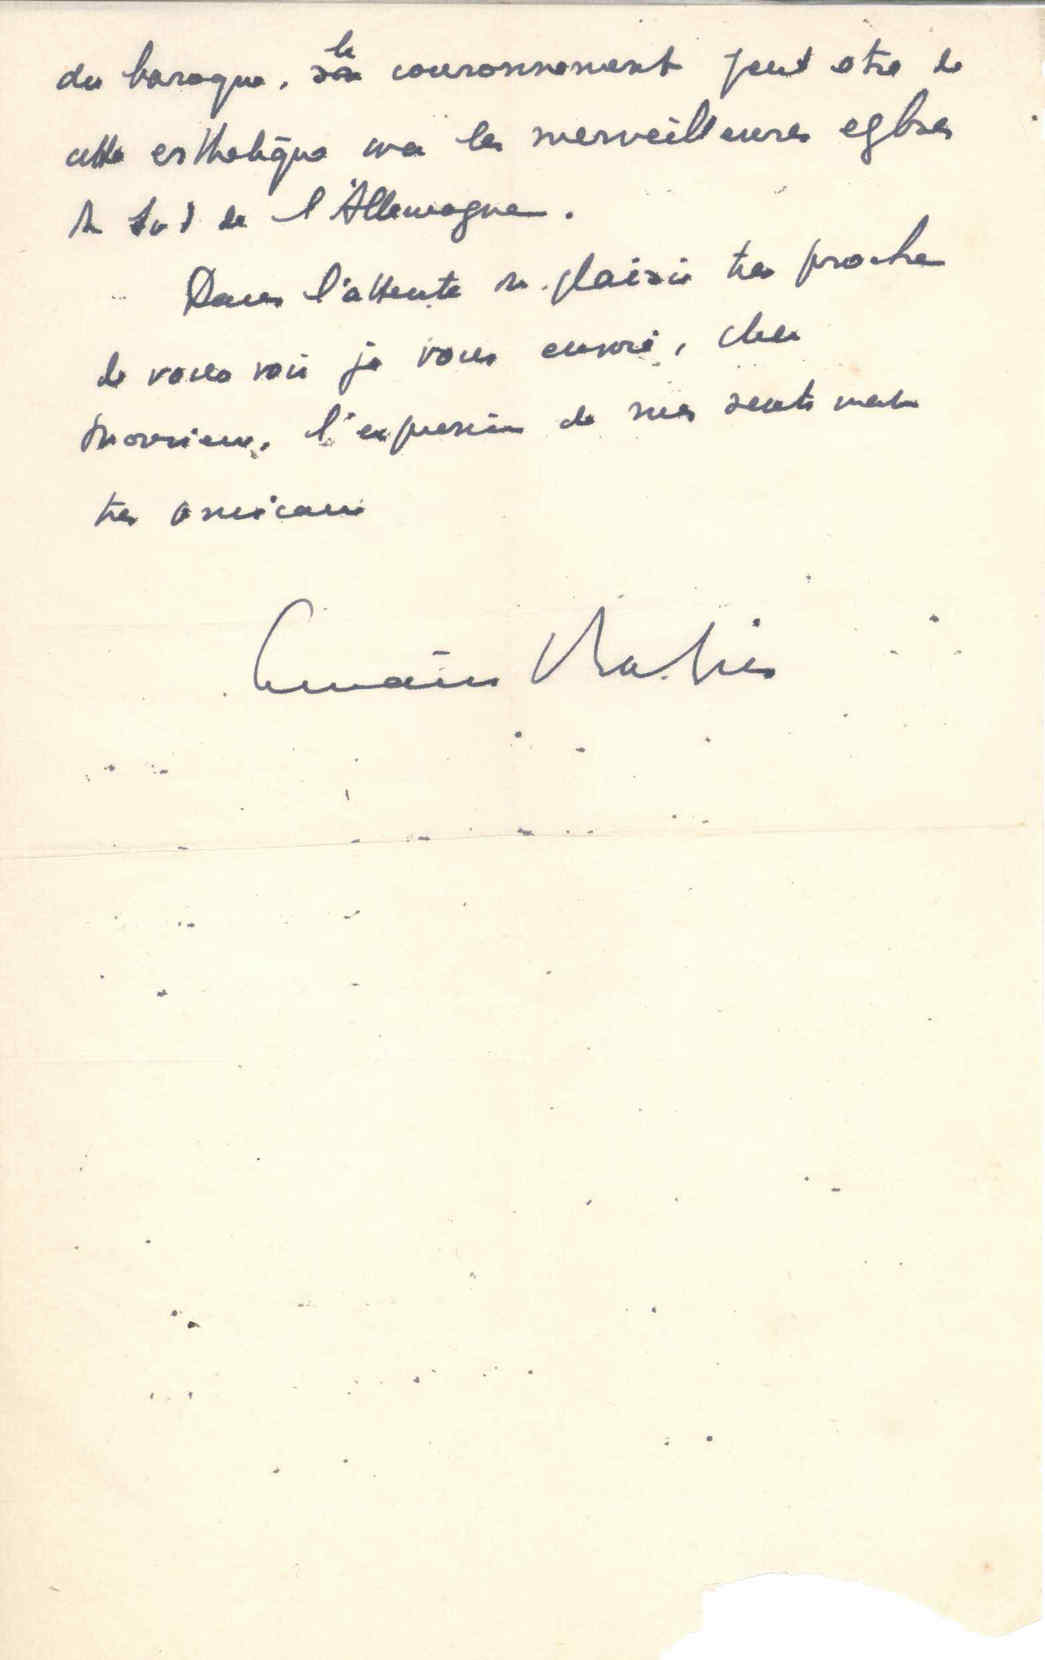 du baroque. le couronnement peut etre de
cette esthetique via les merveilleuses eglises
du Sud de l'Allemagne.
Dans l'attente du plaisir tres proche
de vous voir je vous envoie, cher
Monsieur, l'expression de mes sentiments
tres amicaux
Germain